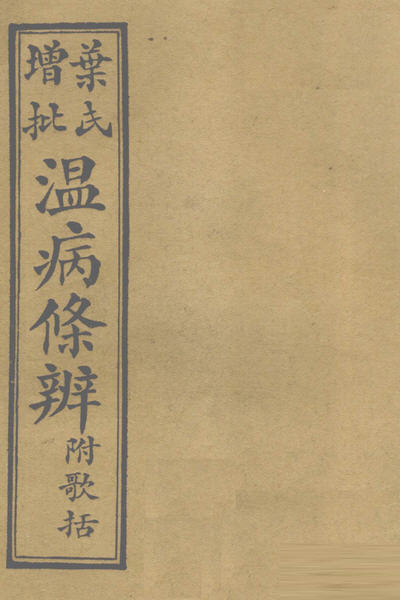 葉氏
增批
温病條辨
附歌括